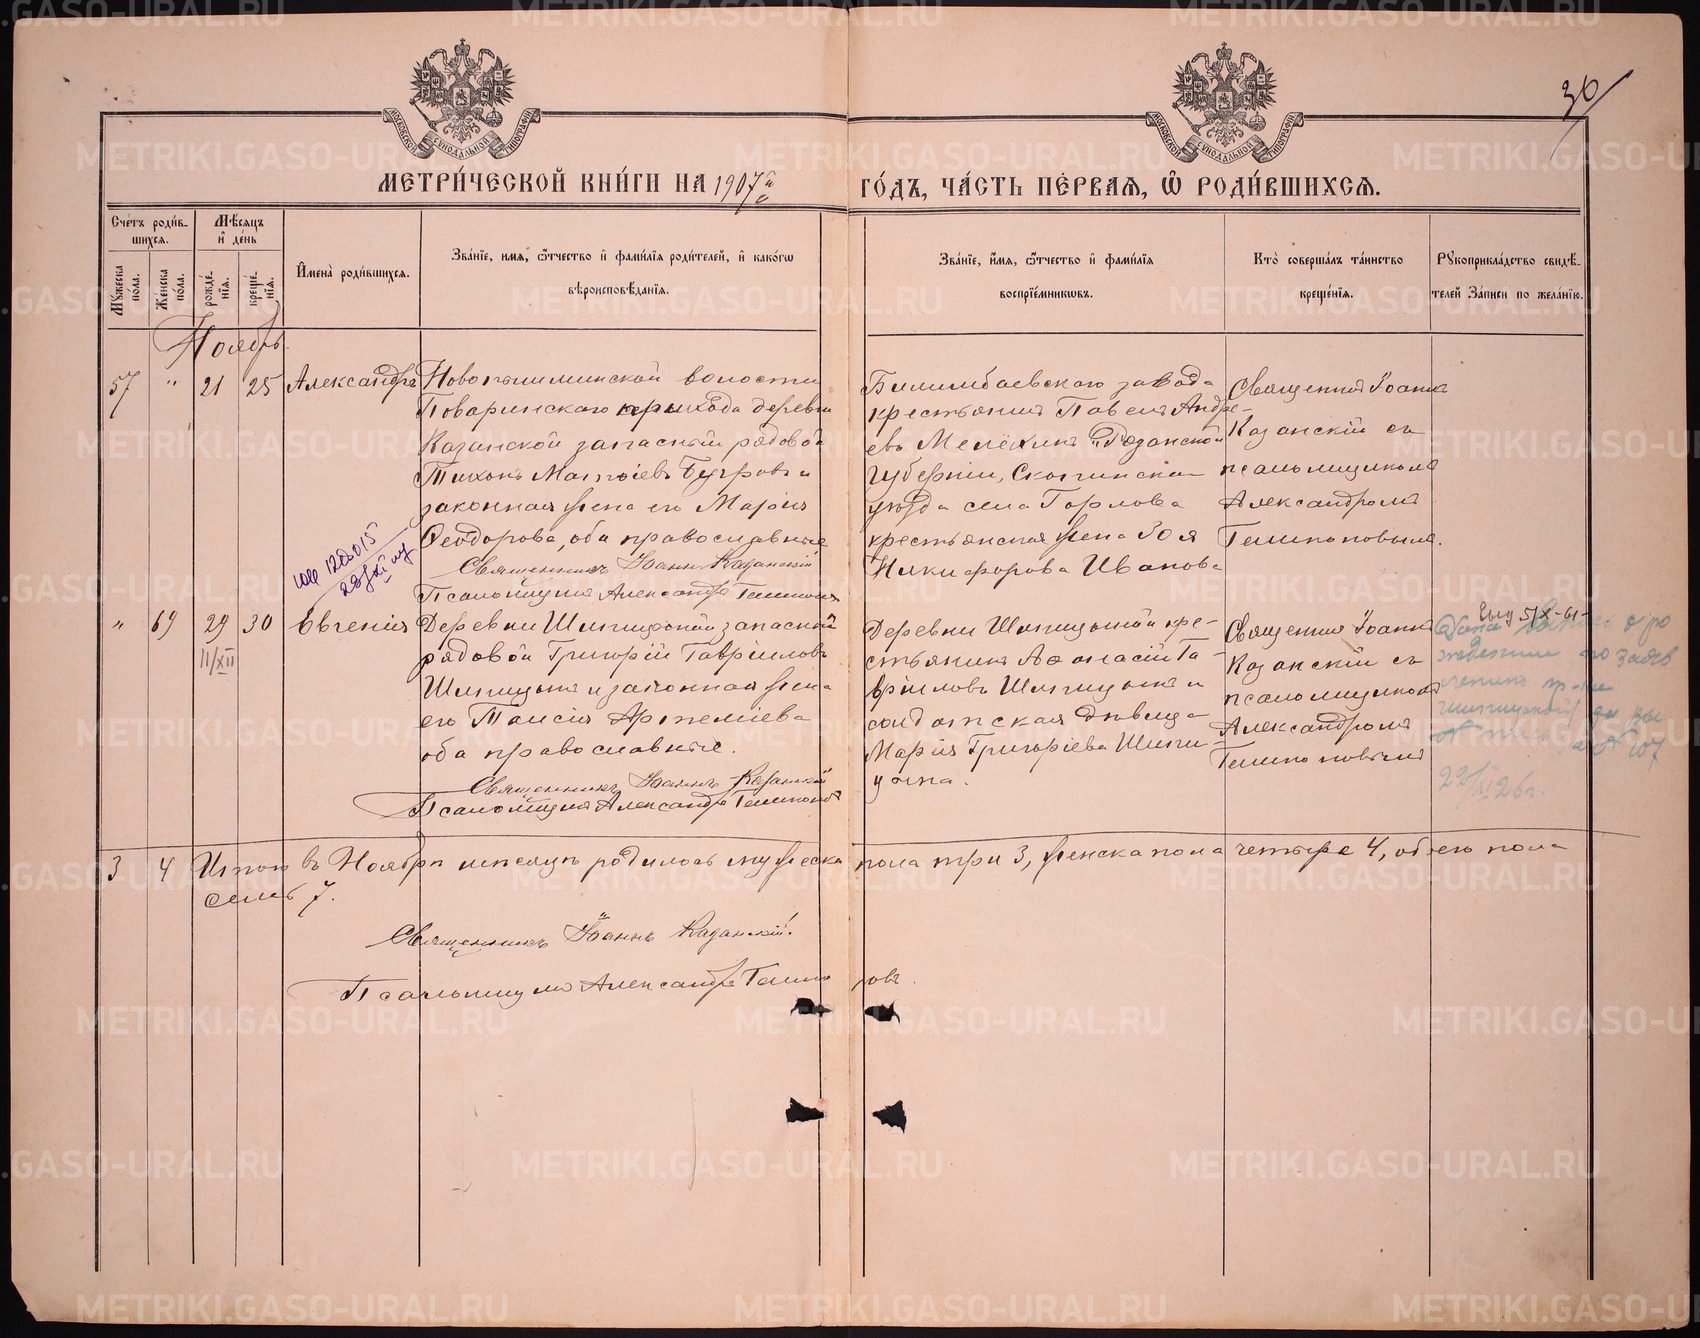 30
МОСКОВСКОЙ СУНОДАЛЬНОЙ ТИПОГРАФІИ
МОСКОВСКОЙ СУНОДАЛЬНОЙ ТИПОГРАФІИ
МЕТРИ́ЧЕСКОЙ КНИ́ГИ НА 1907й ГО́ДЪ, ЧА́СТЬ ПЕ́РВАЯ, Ѡ҆ РОДИ́ВШИХСЯ.
Сче́тъ роди́в-
шихся.
Мѣсяцъ
и҆ де́нь
Мꙋжеска по́ла.
Женска по́ла.
рожде́нїя.
креще́нїя.
И҆мена̀ роди́вшихся.
Зва́нїе, имя, ѻ҆́тчество и҆ фами́лїѧ роди́телей, и҆ како́гѡ
вѣроисповѣ́данїя.
Зва́нїе, и҆́мя, ѻ҆́тчество и҆ фами́лїя
воспрїе́мникѡвъ.
Кто̀ соверша́лъ та́инство
креще́нїя.
Рꙋкоприкла́дство свидѣ́-
телей За́писи по жела́нїю.
Ноябрь.
57 " 21 25 Александръ
Новопышминской волости
Поваринскаго прихода деревни
Казанской запасный рядовой
Тихонъ Матѳіевъ Бугровъ и
законная жена его Марія
Ѳеодорова, оба православные
Священникъ Іоаннъ Казанскій
Псаломщикъ Александръ
Билимбаевскаго завода
крестьянинъ Павелъ Андре-
евъ Мелехинъ и Рязанской
губерніи, Скопинска
уѣзда села Горлова
крестьянская жена Зоя
Никифорова Иванова
Священникъ Іоаннъ
Казанскій съ
псаломщикомъ
Александромъ
" 69 29 30 Евгенія
11/XII
Деревни Шипицыной запасной
рядовой Григорій Гавріиловъ
Шипицынъ и законная жена
его Таисія Артеміева
оба православные.
Священникъ Іоаннъ Казанскій
Псаломщикъ Александръ
Деревни Шипицыной кре-
стьянинъ Аѳанасій Га-
вріиловъ Шипицынъ и
солдатская дѣвица
Марія Григоріева Шипи-
цына.
Священникъ Іоаннъ
Казанскій съ
псаломщикомъ
Александромъ
3 4 Итого въ Ноябрѣ мѣсяцѣ родилось мужеска пола три 3, женска пола четыре 4, обоего пола
семь 7.
Священникъ Іоаннъ Казанскій.
Псаломщикъ Александръ
METRIKI.GASO-URAL.RU